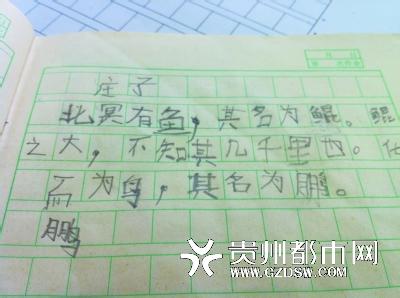 庄子
北冥有鱼，其名为鲲。鲲
之大，不知其几千里也。化
而为鸟，其名为鹏。
鹏
贵州都市网
WWW.GZDSW.COM